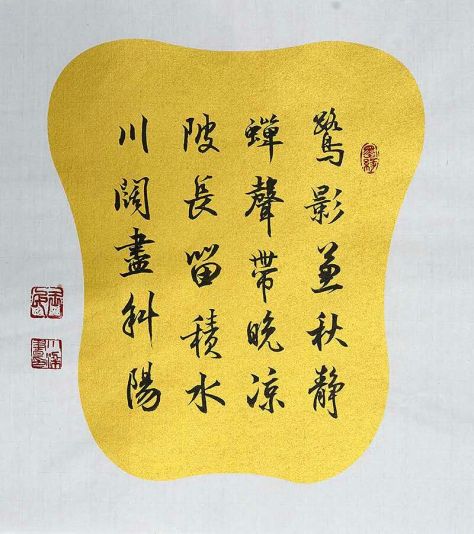 鹭影兼秋静
蟬聲带晚凉
陂長留積水
川闊盡斜陽